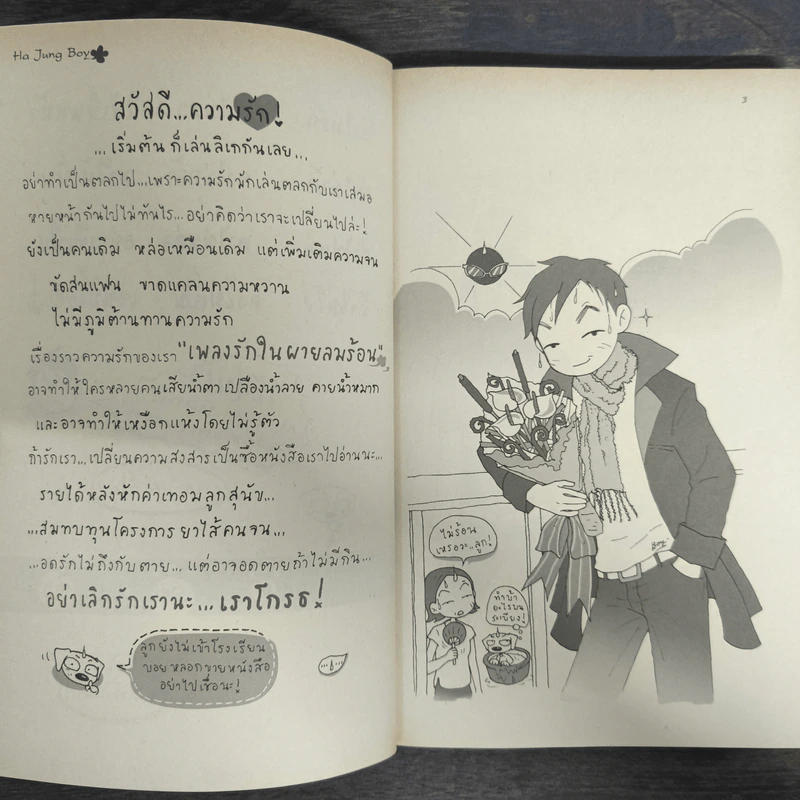 Ha Jung Boy
สวัสดี...ความรัก!
...เริ่มต้น ก็เล่นลิเกกันเลย...
อย่าทำเป็นตลกไป...เพราะความรักมักเล่นตลกกับเราเสมอ
หายหน้ากันไปไม่ทันไร...อย่าคิดว่าเราจะเปลี่ยนไปล่ะ!
ยังเป็นคนเดิม หล่อเหมือนเดิม แต่เพิ่มเติมความจน
ขัดสนแฟน ขาดแคลนความหวาน
ไม่มีภูมิต้านทานความรัก
เรื่องราวความรักของเรา "เพลงรักในผายลมร้อน"
อาจทำให้ใครหลายคนเสียน้ำตา เปลืองน้ำลาย คายน้ำหมาก
และอาจทำให้เหงือกแห้งโดยไม่รู้ตัว
ถ้ารักเรา...เปลี่ยนความสงสารเป็นซื้อหนังสือเราไปอ่านนะ...
รายได้หลังหักค่าเทอมลูกสุนัข...
...สมทบทุนโครงการยาไส้คนจน...
...อดรักไม่ถึงกับตาย...แต่อาจอดตายถ้าไม่มีกิน...
อย่าเลิกรักเรานะ...เราโกรธ!
ลูกยังไม่เข้าโรงเรียน
บอยหลอกขายหนังสือ
อย่าไปเชื่อนะ!
3
ไม่ร้อน
เหรอวะ..ลูก!
ทำบ้า
อะไรบน
ระเบียง!
Boy